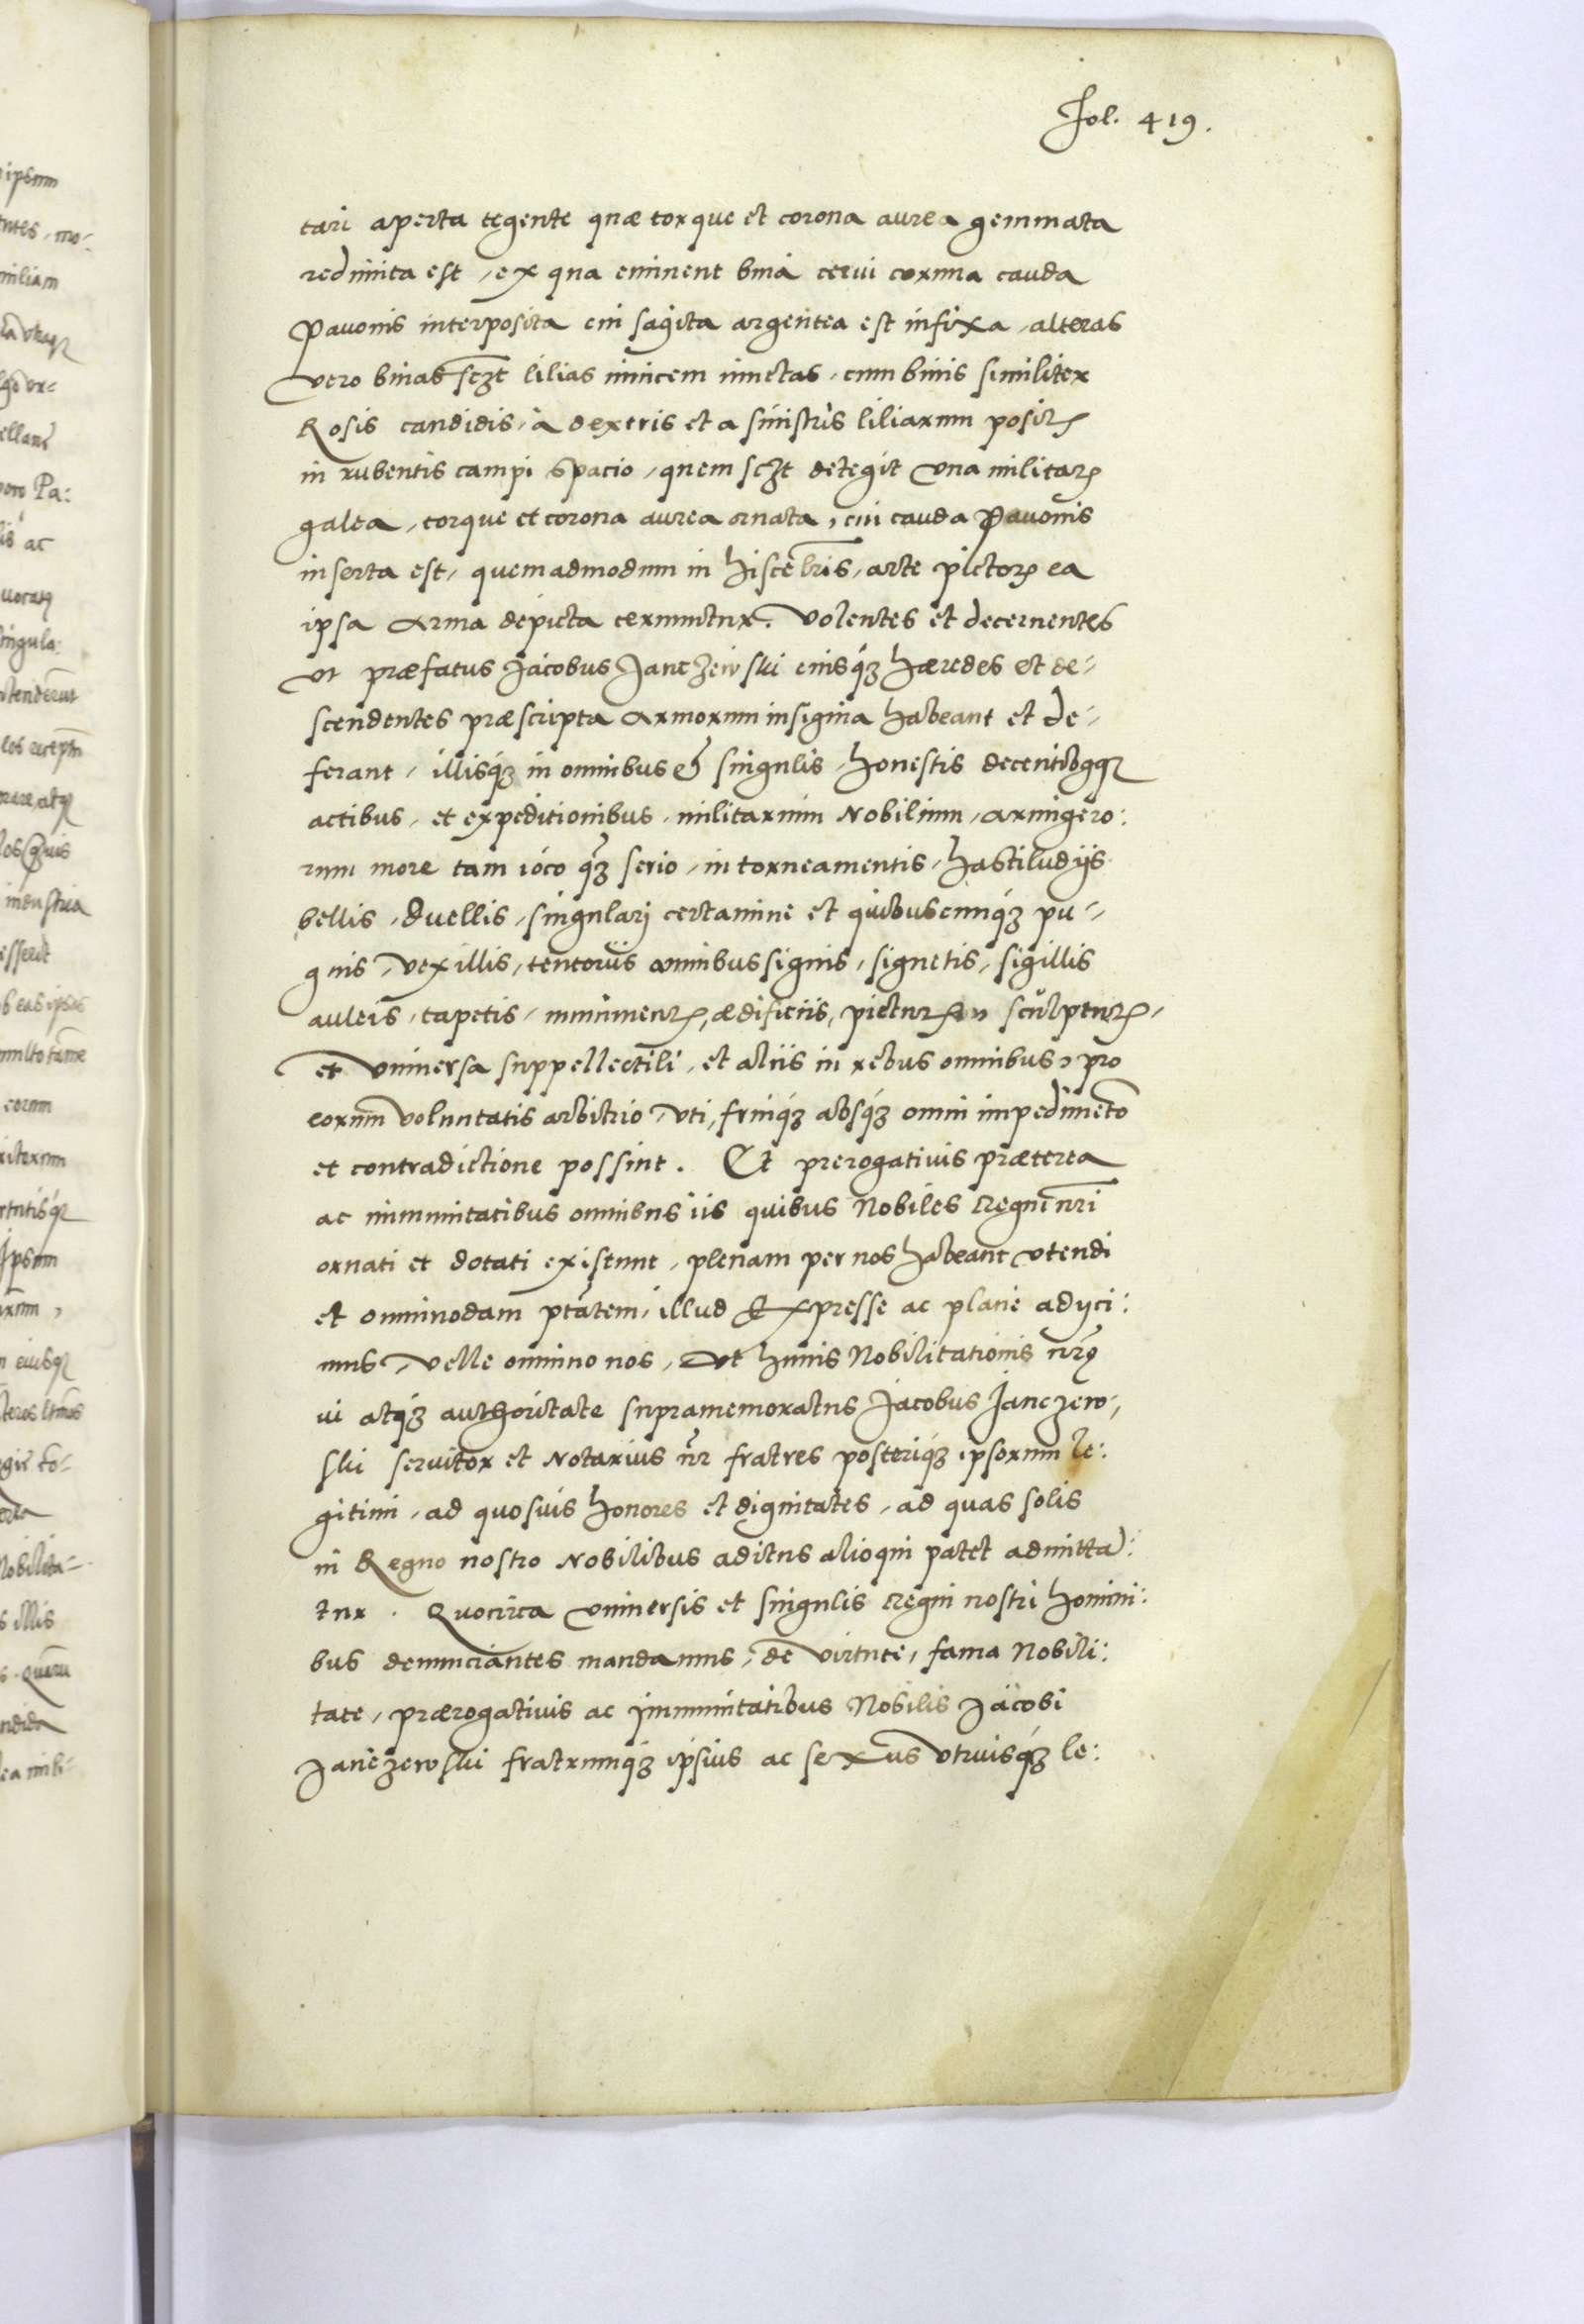 Fol. 419.
tari aperta tegente quæ torque et corona aurea gemmata
redimita est, ex qua eminent bina cerui cornua cauda
Pauonis interposita cui sagita argentea est infixa, alteras
vero binas sczt lilias inuicem iunctas, cum binis similiter
Rosis candidis, à dextris et a sinistris liliarum positꝭ
in rubentis campi spacio, quem sczt detegit vna militarꝭ
galea, torque et corona aurea ornata, cui cauda Pauonis
inserta est, quemadmodum in hisce l̃ris, arte pictorꝭ ea
ipsa Arma depicta cernuntur. Volentes et decernentes
vt præfatus Jacobus Janczewski eiusq́ꝫ hæredes et de-
scendentes præscripta Armorum insignia habeant et de-
ferant, illisq́ꝫ in omnibus & singulis honestis decentibqꝫ
actibus, et expeditionibus, militarium Nobilium, armigero:
rum more tam ioco q̃ꝫ serio, in torneamentis, hastiludijs
bellis, duellis, singulari certamine et quibuscunq́ꝫ pu-
gnis, vexillis, tentoriis omnibus signis, signetis, sigillis
auleis, tapetis, munimentꝭ, ædificiis, picturꝭ sculpturꝭ,
et vniuersa suppellectili, et aliis in rebus omnibus, pro
eorum voluntatis arbitrio, vti, fruiq́ꝫ absq́ꝫ omni impedimẽto
et contradictione possint. Et prerogatiuis præterea
ac immunitatibus omnibus iis quibus Nobiles Regni nr̃i
ornati et dotati existunt, plenam per nos habeant vtendi
et omnimodam ptãtem, illud Expresse ac plane adyci:
mus, velle omnino nos, vt huius Nobilitationis nr̃ę
ui atq́ꝫ authoritate supramemoratus Jacobus Janczew,
ski seruitor et Notarius nr̃ fratres posteriq́ꝫ ipsorum le:
gitimi, ad quosuis honores et dignitates, ad quas solis
in Regno nostro Nobilibus aditus alioqui patet admitta:
tur. Quocirca vniuersis et singulis Regni nostri homini:
bus denunciantes mandamus, de virtute, fama Nobili:
tate, prærogatiuis ac immunitatibus Nobilis Jacobi
Janczewski fratrumq́ꝫ ipsius ac sexus vtriusq́ꝫ le: